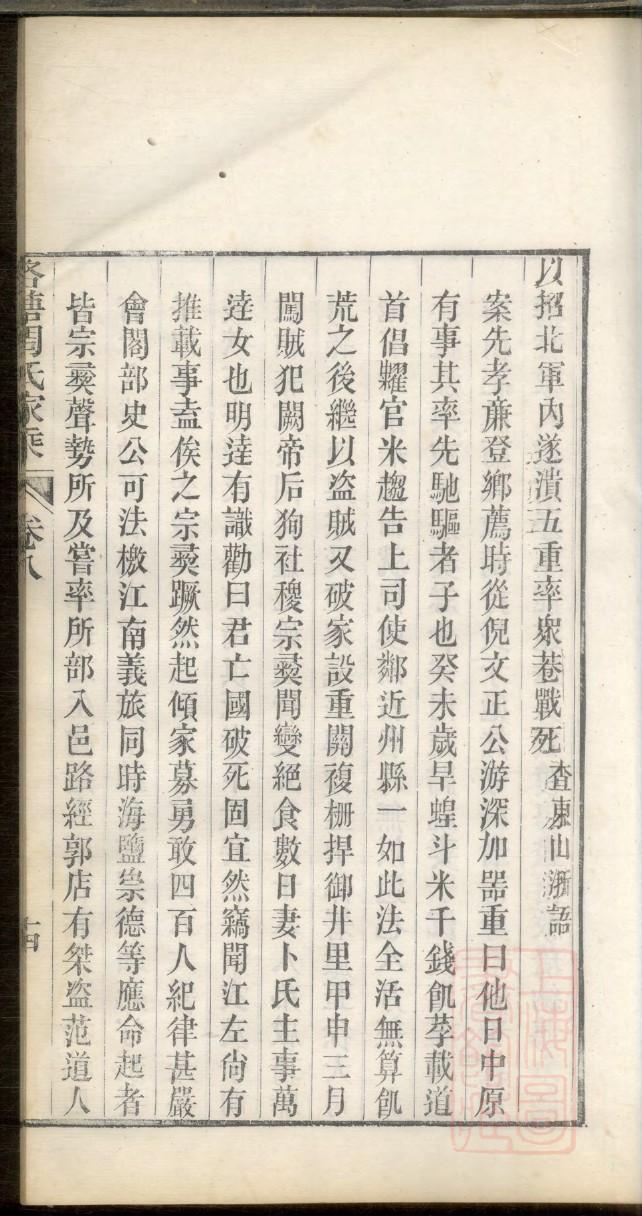 以招北軍內遂潰五重率眾巷戰死查東山浙語
案先孝亷登鄉薦時從倪文正公游深加噐重曰他日中原
有事其率先馳驅者子也癸未歲旱蝗斗米千錢飢莩載道
首倡糶官米趨告上司使鄰近州縣一如此法全活無算飢
荒之後繼以盗賊又破家設重關複栅捍御井里甲申三月
闖賊犯闕帝后狥社稷宗彛聞變絕食數日妻卜氏主事萬
逵女也明達有識勸曰君亡國破死固宜然竊聞江左尙有
推載事盍俟之宗彛蹶然起傾家募勇敢四百人紀律甚嚴
會閣部史公可法檄江南義旅同時海鹽崇德等應命起者
皆宗彛聲勢所及嘗率所部入邑路經郭店有桀盗范道人
周氏家乘 卷八 十四